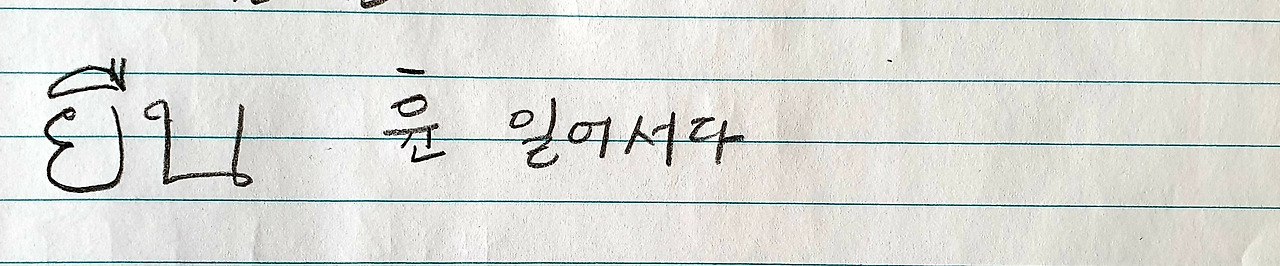 ยืน 윤 일어서다